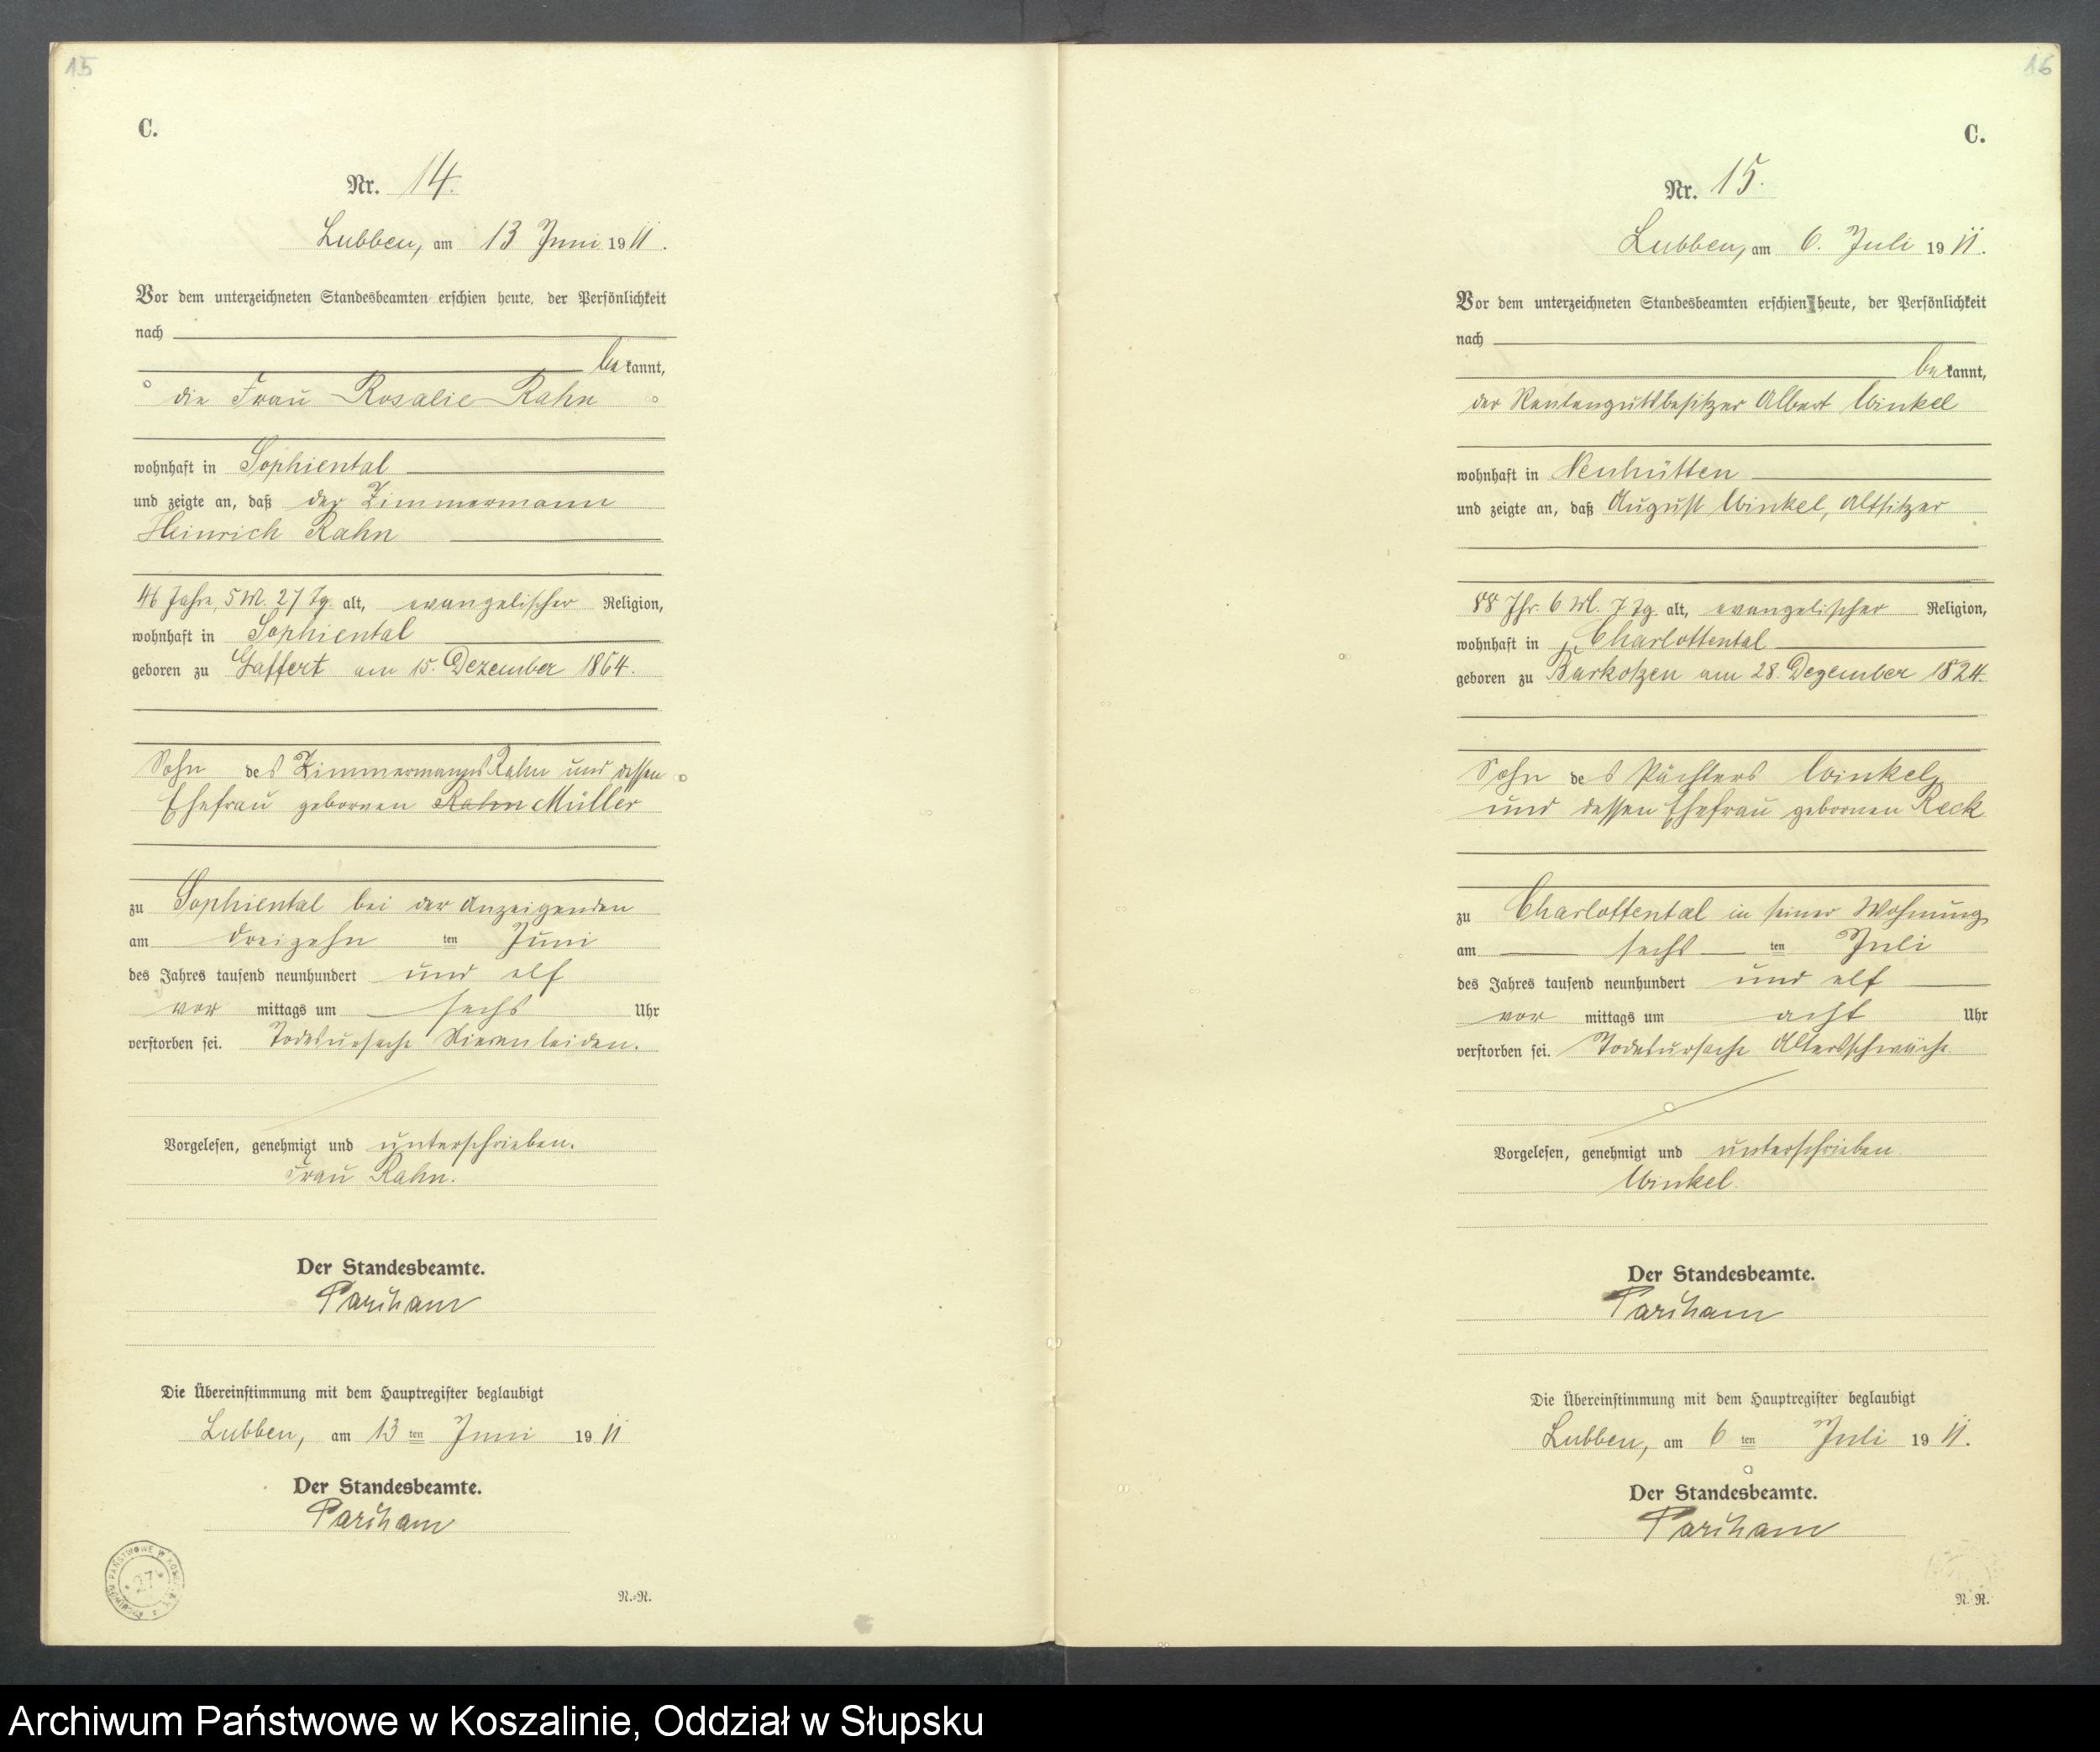 15
C.
Nr. 14.
Lubben, am 13 Juni 1911.
Vor dem unterzeichneten Standesbeamten erschien heute, der Persönlichkeit
nach
bekannt,
die Frau Rosalie Rahn
wohnhaft in Sophiental
und zeigte an, daß der Zimmermann
Heinrich Rahn
46 Jahre, 5 M. 27 Tg. alt, evangelischer Religion,
wohnhaft in Sophiental
geboren zu Gaffert am 15. Dezember 1864.
Sohn des Zimmermanns Rahn und dessen
Ehefrau gebornen Rahn Müller
zu Sophiental bei der Anzeigenden
am dreizehn ten Juni
des Jahres tausend neunhundert und elf
vor mittags um sechs Uhr
verstorben sei. Todesursache Nierenleiden.
Vorgelesen, genehmigt und unterschrieben.
Frau Rahn.
Der Standesbeamte.
Die Übereinstimmung mit dem Hauptregister beglaubigt
Lubben, am 13 ten Juni 1911
Der Standesbeamte.
27
N.-N.
16
C.
Nr. 15.
Lubben, am 6. Juli 1911.
Vor dem unterzeichneten Standesbeamten erschien heute, der Persönlichkeit
nach
bekannt,
der Rentengutsbesitzer Albert Winkel
wohnhaft in Neuhütten
und zeigte an, daß August Winkel, Altsitzer
88 Jhr. 6 M. 7 Tg. alt, evangelischer Religion,
wohnhaft in Charlottental
geboren zu Barkotzen am 28. Dezember 1824.
Sohn des Pächters Winkel
und dessen Ehefrau gebornen Reck
zu Charlottental in seiner Wohnung
am sechs ten Juli
des Jahres tausend neunhundert und elf
vor mittags um acht Uhr
verstorben sei. Todesursache Altersschwäche
Vorgelesen, genehmigt und unterschrieben.
Winkel.
Der Standesbeamte.
Die Übereinstimmung mit dem Hauptregister beglaubigt
Lubben, am 6 ten Juli 1911.
Der Standesbeamte.
N. N.
Archiwum Państwowe w Koszalinie, Oddział w Słupsku